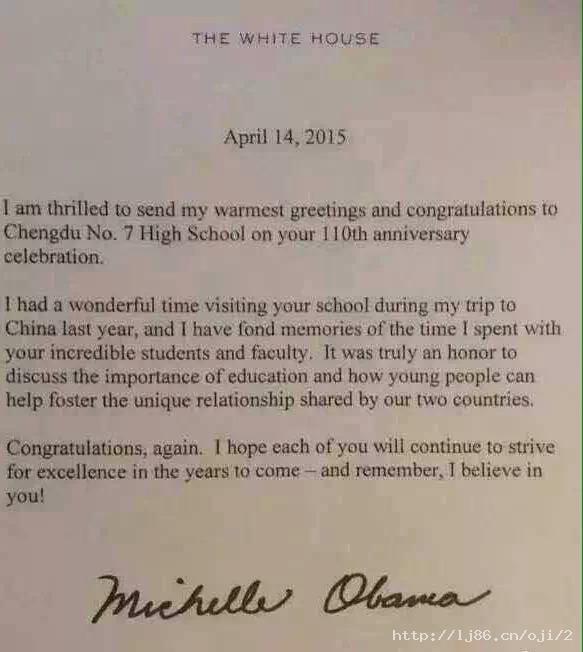 THE WHITE HOUSE
April 14, 2015
I am thrilled to send my warmest greetings and congratulations to
Chengdu No. 7 High School on your 110th anniversary
celebration.
I had a wonderful time visiting your school during my trip to
China last year, and I have fond memories of the time I spent with
your incredible students and faculty.  It was truly an honor to
discuss the importance of education and how young people can
help foster the unique relationship shared by our two countries.
Congratulations, again.  I hope each of you will continue to strive
for excellence in the years to come – and remember, I believe in
you!
Michelle Obama
http://lj86.cn/oji/2